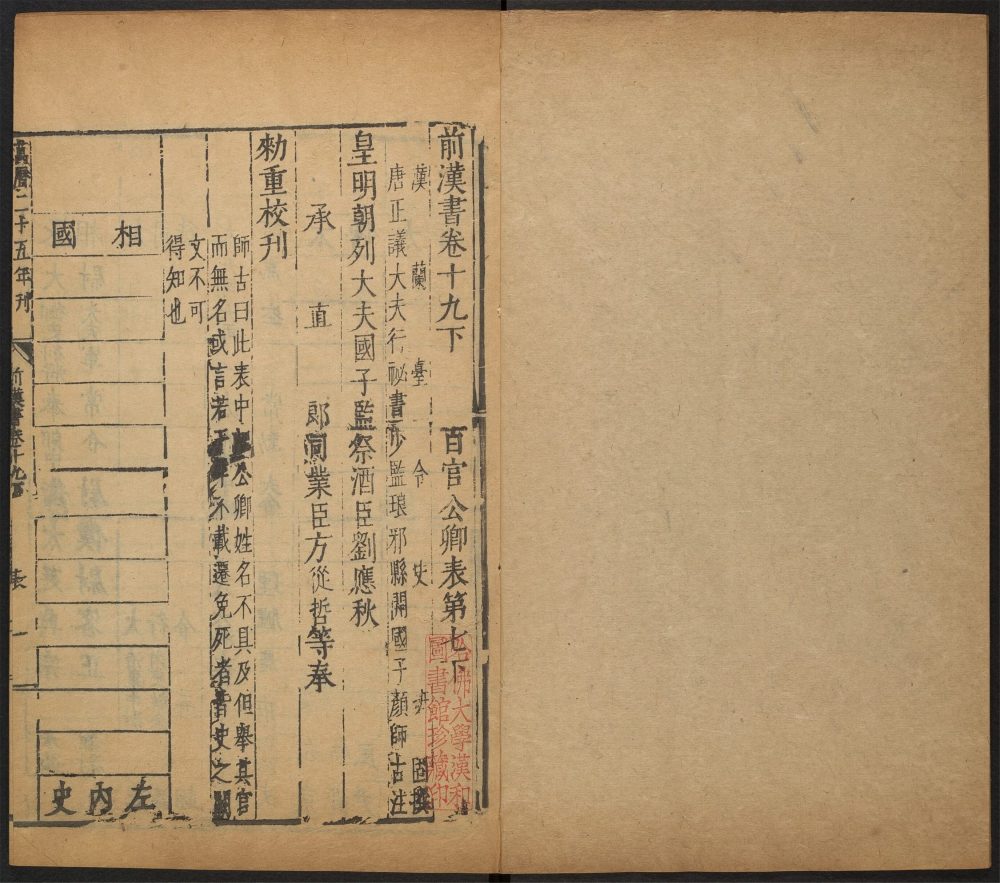 前漢書卷十九下 百官公卿表第七下
漢蘭臺令史班固撰
唐正議大夫行祕書少監琅邪縣開國子顏師古注
皇明朝列大夫國子監祭酒臣劉應秋
承直郎司業臣方從哲等奉
勑重校刊
師古曰此表中記公卿姓名不具及但舉其官
而無名或言若干年不載遷免死者皆史之闕
文不可
得知也
相國
左內史
萬曆二十五年刊
前漢書卷十九下
表
一
哈佛大學漢和
圖書館珍藏印